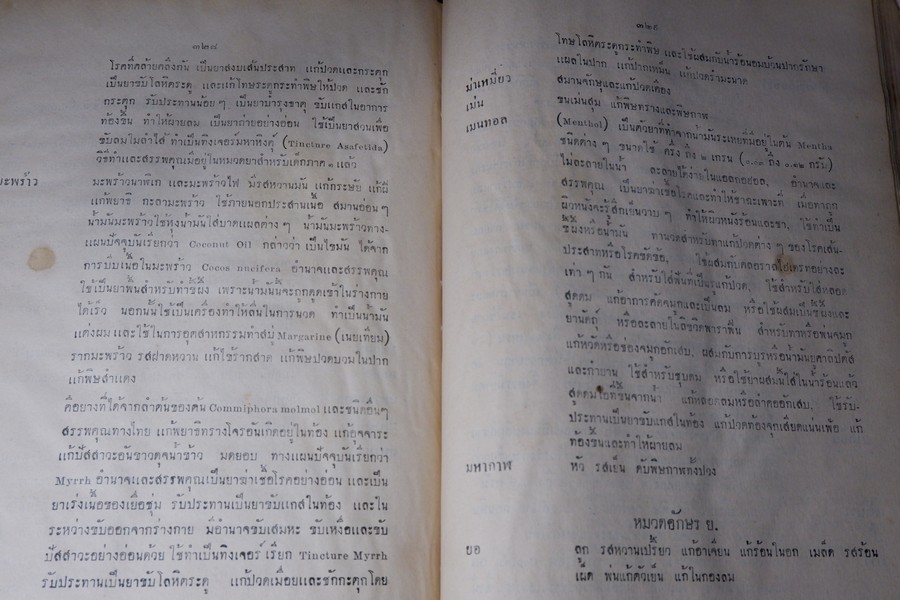 ๓๒๘
โรคที่คล้ายคลึงกัน เป็นยาสงบเส้นประสาท แก้ปวดและกระตุก
เป็นยาขับโลหิตระดู และแก้โทษระดูกระทำพิษให้ปวด และชัก
กระตุก รับประทานน้อยๆ เป็นยาบำรุงธาตุ ขับแกสในอาการ
ท้องขึ้น ทำให้ผายลม เป็นยาถ่ายอย่างอ่อน ใช้เป็นยาสวนเพื่อ
ขับลมในลำไส้ ทำเป็นทิงเจอร์มหาหิงคุ์ (Tincture Asafetida)
วิธีทำและสรรพคุณมีอยู่ในหมวดยาสำหรับเด็กภาค ๑ แล้ว
มะพร้าว มะพร้าวนาฬิเก และมะพร้าวไฟ มีรสหวานมัน แก้กระษัย แก้ฝี
แก้พยาธิ กะลามะพร้าว ใช้ภายนอกประสานเนื้อ สมานอ่อนๆ
น้ำมันมะพร้าวใช้หุงน้ำมันใส่บาดแผลต่างๆ น้ำมันมะพร้าวทาง-
แผนปัจจุบันเรียกว่า Coconut Oil กล่าวว่า เป็นไขมัน ได้จาก
การบีบเนื้อในมะพร้าว Cocos nucifera อำนาจและสรรพคุณ
ใช้เป็นยาพื้นสำหรับทำขี้ผึ้ง เพราะน้ำมันนี้จะถูกดูดเข้าในร่างกาย
ได้เร็ว นอกนั้นใช้เป็นเครื่องทำให้ลื่นในการนวด ทำเป็นน้ำมัน
แต่งผม และใช้ในการอุตสาหกรรมทำสบู่ Margarine (เนยเทียม)
รากมะพร้าว รสฝาดหวาน แก้ไข้รากสาด แก้พิษปวดบวมในปาก
แก้พิษสำแดง
คือยางที่ได้จากลำต้นของต้น Commiphora molmol และชนิดอื่นๆ
สรรพคุณทางไทย แก้พยาธิทางโจรอันเกิดอยู่ในท้อง แก้อุจจาระ
แก้ปัสสาวะอันขาวดุจน้ำข้าว มดยอบ ทางแผนปัจจุบันเรียกว่า
Myrrh อำนาจและสรรพคุณเป็นยาฆ่าเชื้อโรคอย่างอ่อน และเป็น
ยาเร่งเนื้อของเยื่อชุ่ม รับประทานเป็นยาขับแกสในท้อง และใน
ระหว่างขับออกจากร่างกาย มีอำนาจขับเสมหะ ขับเหงื่อและขับ
ปัสสาวะอย่างอ่อนด้วย ใช้ทำเป็นทิงเจอร์ เรียก Tincture Myrrh
รับประทานเป็นยาขับโลหิตระดู แก้ปวดเมื่อยและชักกะตุกโดย
๓๒๙
โทษโลหิตระดูกระทำพิษ และใช้ผสมกับน้ำร้อนอมบ้วนปากรักษา
แผลในปาก แก้ปากเหม็น แก้ปวดรำมะนาด
ม่าเหมี่ยว สมานจักษุและแก้ปวดเคือง
เม่น ขนเม่นสุม แก้พิษทรางและพิษกาฬ
เมนทอล (Menthol) เป็นตัวยาที่ทำจากน้ำมันระเหยที่มีอยู่ในต้น Mentha
ชนิดต่างๆ ขนาดใช้ ครึ่ง ถึง ๒ เกรน (๐.๐๓ ถึง ๐.๑๒ กรัม)
ไม่ละลายในน้ำ ละลายได้ง่ายในแอลกอฮอล, อำนาจและ
สรรพคุณ เป็นยาฆ่าเชื้อโรคและทำให้ชาฉะเพาะที่ เมื่อทาถูก
ผิวหนังจะรู้สึกเย็นวาบๆ ทำให้ผิวหนังร้อนและชา, ใช้ทำเป็น
ขี้ผึ้งหรือน้ำมัน ทานวดสำหรับทาแก้ปวดต่างๆ ของโรคเส้น-
ประสาทหรือโรคขัดข้อ, ใช้ผสมกับคลอราลไฮเดรทอย่างละ
เท่าๆ กัน สำหรับใส่ฟันที่เป็นรูแก้ปวด, ใช้สำหรับใส่หลอด
สูดดม แก้อาการคัดจมูกและเป็นลม หรือใช้ผสมเป็นขี้ผึ้งและ
ยานัตถุ์ หรือละลายในลิขวิดพาราฟิน สำหรับทาหรือพ่นจมูก
แก้หวัดหรือช่องจมูกอักเสบ, ผสมกับการบูรหรือน้ำมันยูคาลิปตัส
และกำยาน ใช้สำหรับชุบดม หรือใช้ยาผสมนี้ใส่ในน้ำร้อนแล้ว
สูดดมไอที่ขึ้นจากน้ำ แก้หลอดลมหรือลำคออักเสบ, ใช้รับ-
ประทานเป็นยาขับแกสในท้อง แก้ปวดท้องจุกเสียดแน่นเฟ้อ แก้
ท้องขึ้นและทำให้ผายลม
มหากาฬ หัว รสเย็น ดับพิษกาฬทั้งปวง
หมวดอักษร ย.
ยอ ลูก รสหวานเปรี้ยว แก้อาเจียน แก้ร้อนในอก เมล็ด รสร้อน
เผ็ด พ่นแก้ตัวเย็น แก้ในกองลม